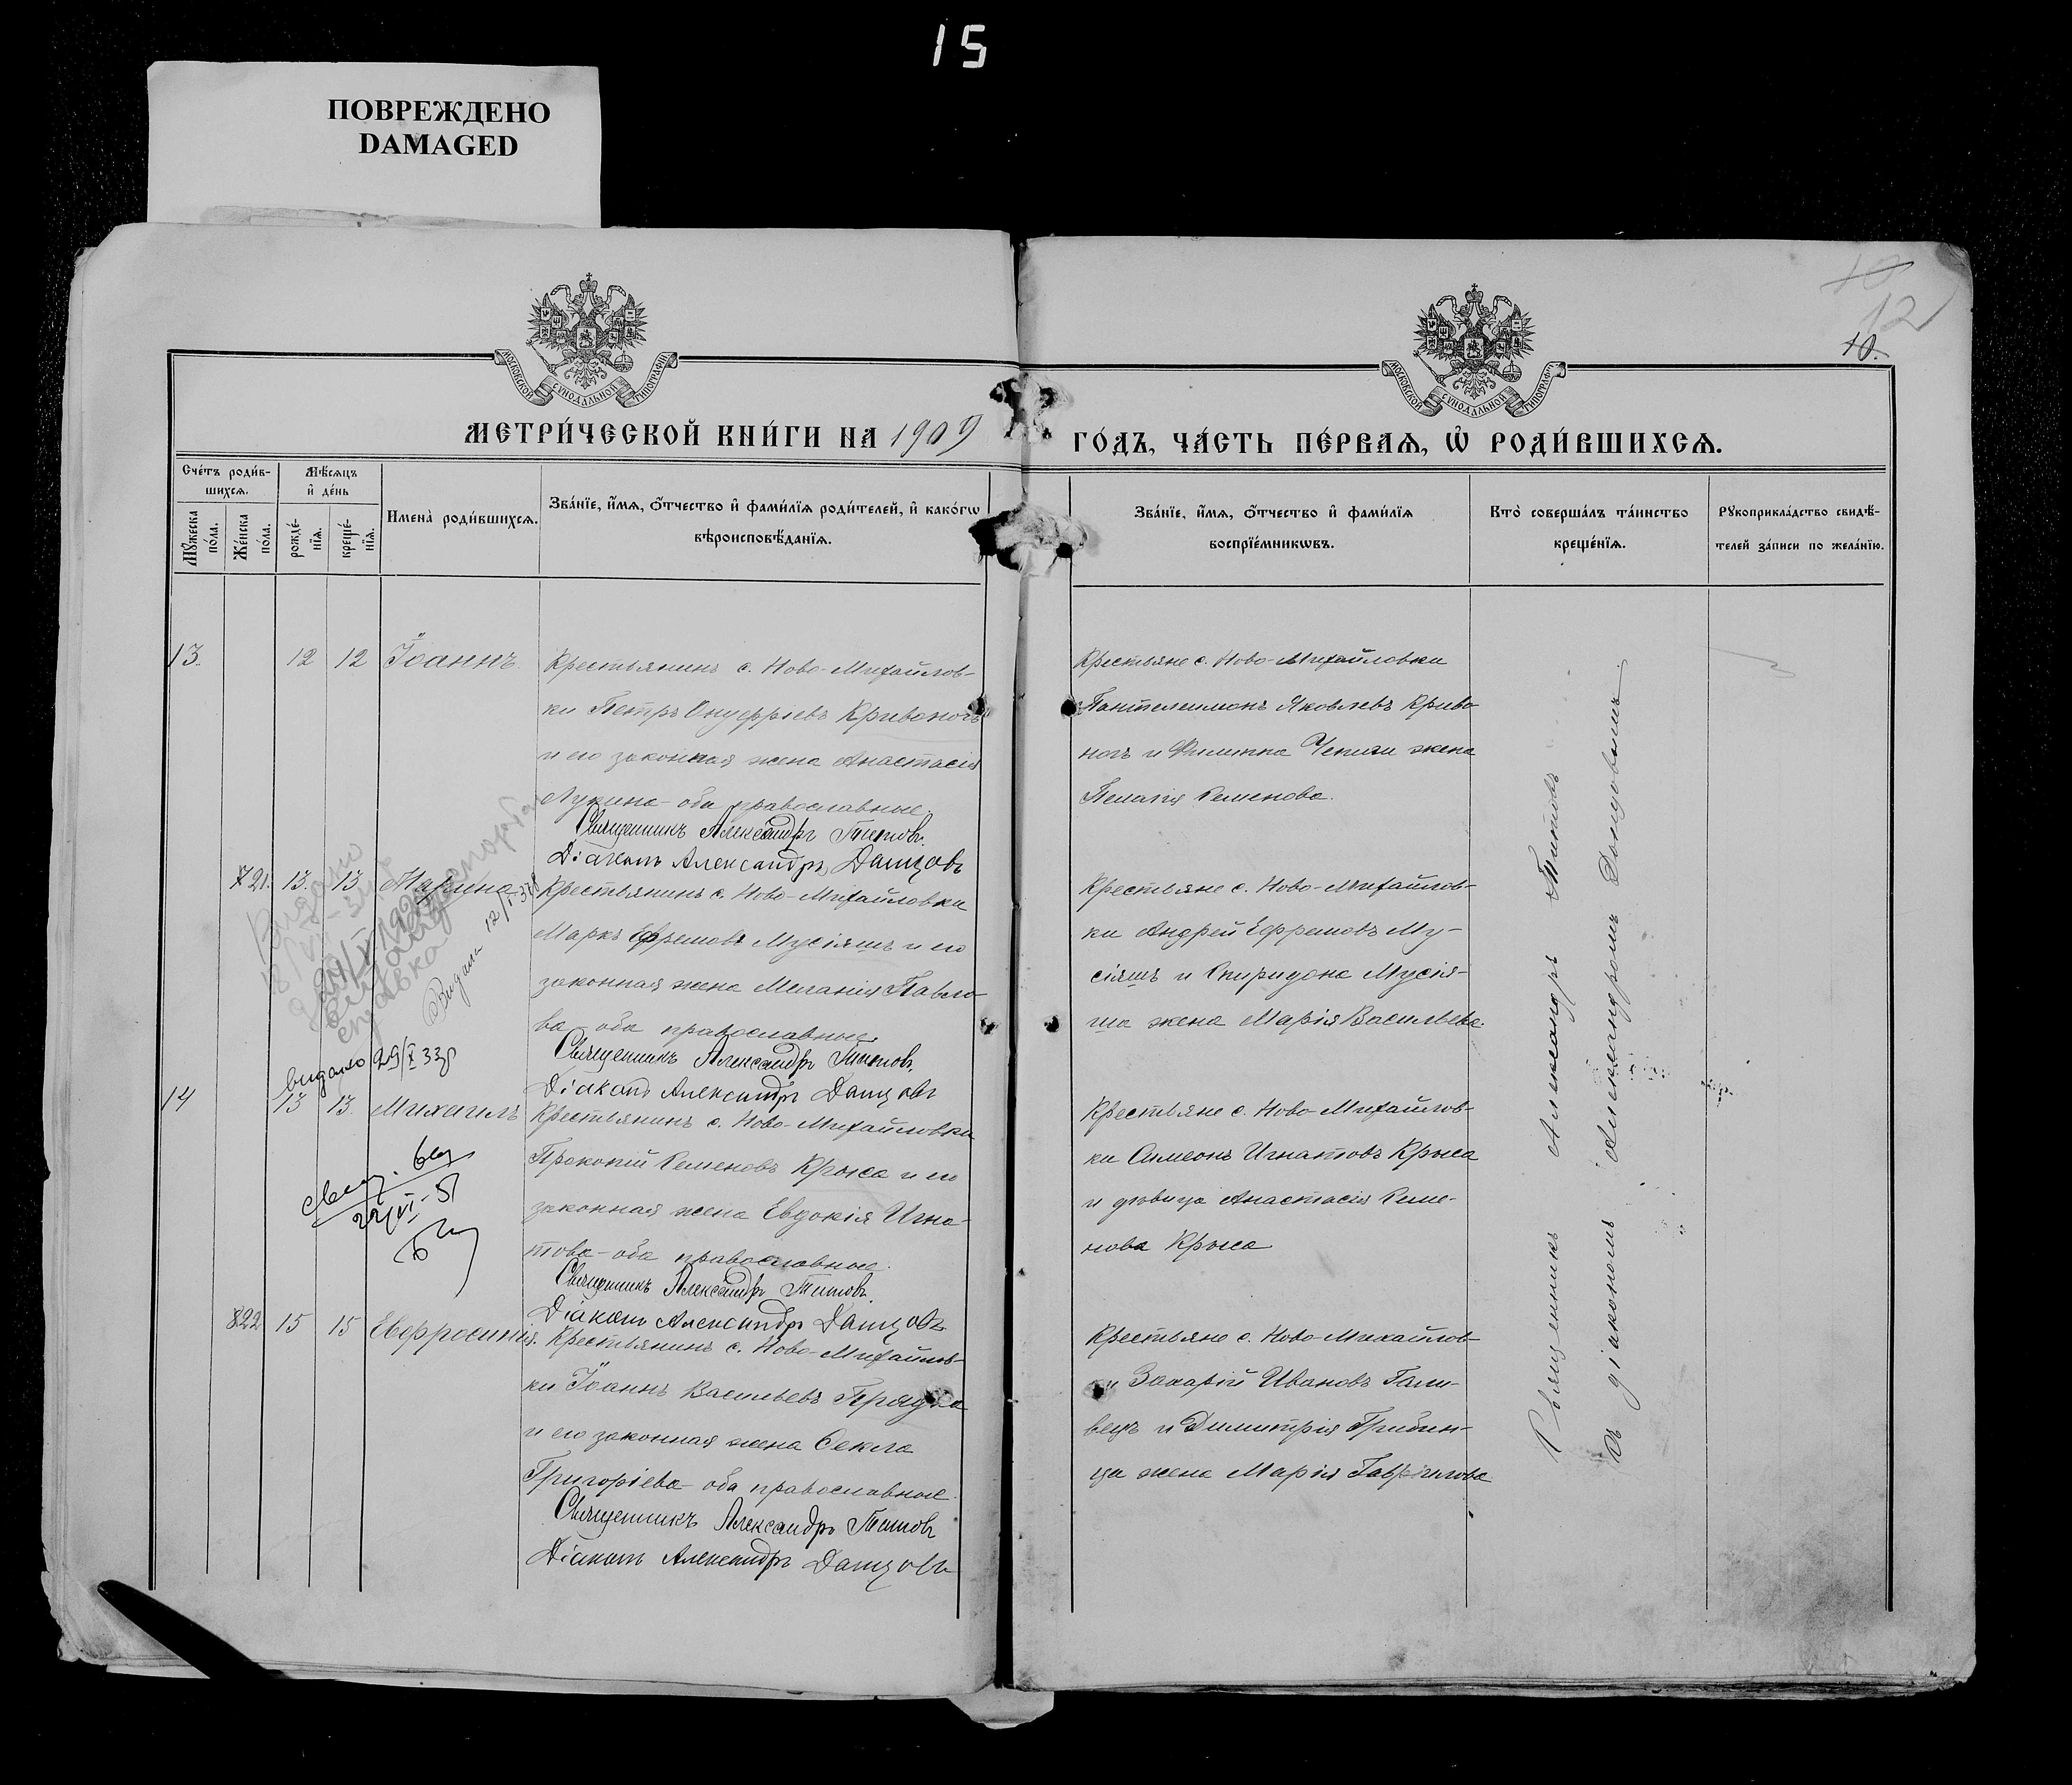 15
ПОВРЕЖДЕНО
DAMAGED
10
12
10.
МОСКОВСКОЙ СУНОДАЛЬНОЙ ТИПОГРАФІИ
МОСКОВСКОЙ СУНОДАЛЬНОЙ ТИПОГРАФІИ
МЕТРИ́ЧЕСКОЙ КНИ́ГИ НА 1909 ГО́ДЪ, ЧА́СТЬ ПЕ́РВАѦ, Ѡ҆ РОДИ́ВШИХСѦ.
Сче́тъ роди́в-
шихсѧ.
Мꙋ́жеска по́ла.
Же́нска пола.
Мѣ́сѧцъ
и҆ де́нь
рожде́-
нїѧ.
креще́-
нїѧ.
Имена̀ роди́вшихсѧ.
Зва́нїе, и҆́мѧ, ѻ҆́тчество и҆ фами́лїѧ роди́телей, и҆ како́гѡ
вѣроисповѣ́данїѧ.
Зва́нїе, и҆́мѧ, ѻ҆́тчество и҆ фами́лїѧ
воспрїе́мникѡвъ.
Кто̀ соверша́лъ та́инство
креще́нїѧ.
Рꙋкоприкла́дство свидѣ́-
телей за́писи по жела́нїю.
13. 12 12 Іоаннъ.
Крестьянинъ с. Ново-Михайлов-
ки Петръ Онуфріевъ Кривоногъ
и его законная жена Анастасія
Лукина - оба православные.
Священникъ Александръ Титовъ.
Діаконъ Александръ Данцовъ
Крестьяне с. Ново-Михайловки
Пантелеимонъ Яковлевъ Криво
ногъ и Филиппа Чепиги жена
Пелагія Семенова.
21. 13. 13 Марина
Крестьянинъ с. Ново-Михайловки
Маркъ Ефремовъ Мусіяшъ и его
законная жена Меланія Павло-
ва - оба православные
Священникъ Александръ Титовъ.
Діаконъ Александръ Данцовъ
Крестьяне с. Ново-Михайлов-
ки Андрей Ефремовъ Му-
сіяшъ и Спиридона Мусія-
ша жена Марія Васильева.
Видано
справка
Видана 12/I-37
видано 29/X 33р
14 13 13 Михаилъ
Крестьянинъ с. Ново-Михайловки
Прокопій Семеновъ Крыса и его
законная жена Евдокія Игна-
това - оба православные.
Священникъ Александръ Титовъ.
Діаконъ Александръ Данцовъ
Крестьяне с. Ново-Михайлов-
ки Симеонъ Игнатовъ Крыса
и дѣвица Анастасія Семе-
нова Крыса
22/VI-51
822 15 15 Евфросинія.
Крестьянинъ с. Ново-Михайлов-
ки Іоаннъ Васильевъ Прядка
и его законная жена Ѳекла
Григоріева - оба православные.
Священникъ Александръ Титовъ
Діаконъ Александръ Данцовъ
Крестьяне с. Ново-Михайлов-
ки Захарій Ивановъ Гали-
вецъ и Димитрія Грибин-
ци жена Марія Гавріилова
Священникъ Александръ Титовъ
съ діакономъ Александромъ Донцовымъ